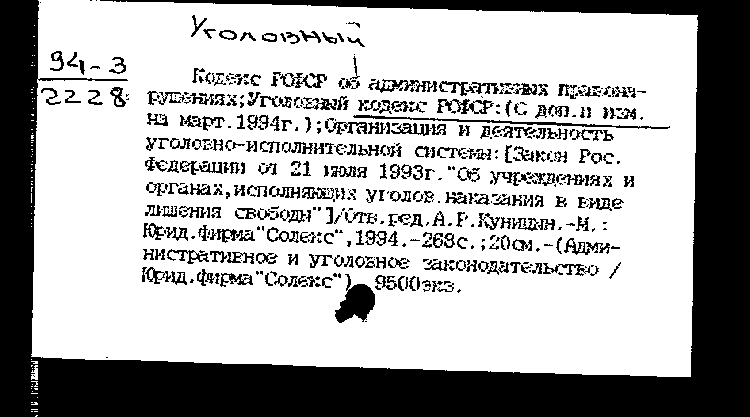 Уголовный
94-3
2228
Кодекс РСФСР об административных правона-
рушениях;Уголовный кодекс РСФСР:(С доп.и изм.
на март.1994г.);Организация и деятельность
уголовно-исполнительной системы:[Закон Рос.
Федерации от 21 июля 1993г."Об учреждениях и
органах,исполняющих уголов.наказания в виде
лишения свободы"]/Отв.ред.А.Р.Куницын.-М.:
Юрид.фирма"Солекс",1994.-268с.;20см.-(Адми-
нистративное и уголовное законодательство /
Юрид.фирма"Солекс") 9500экз.